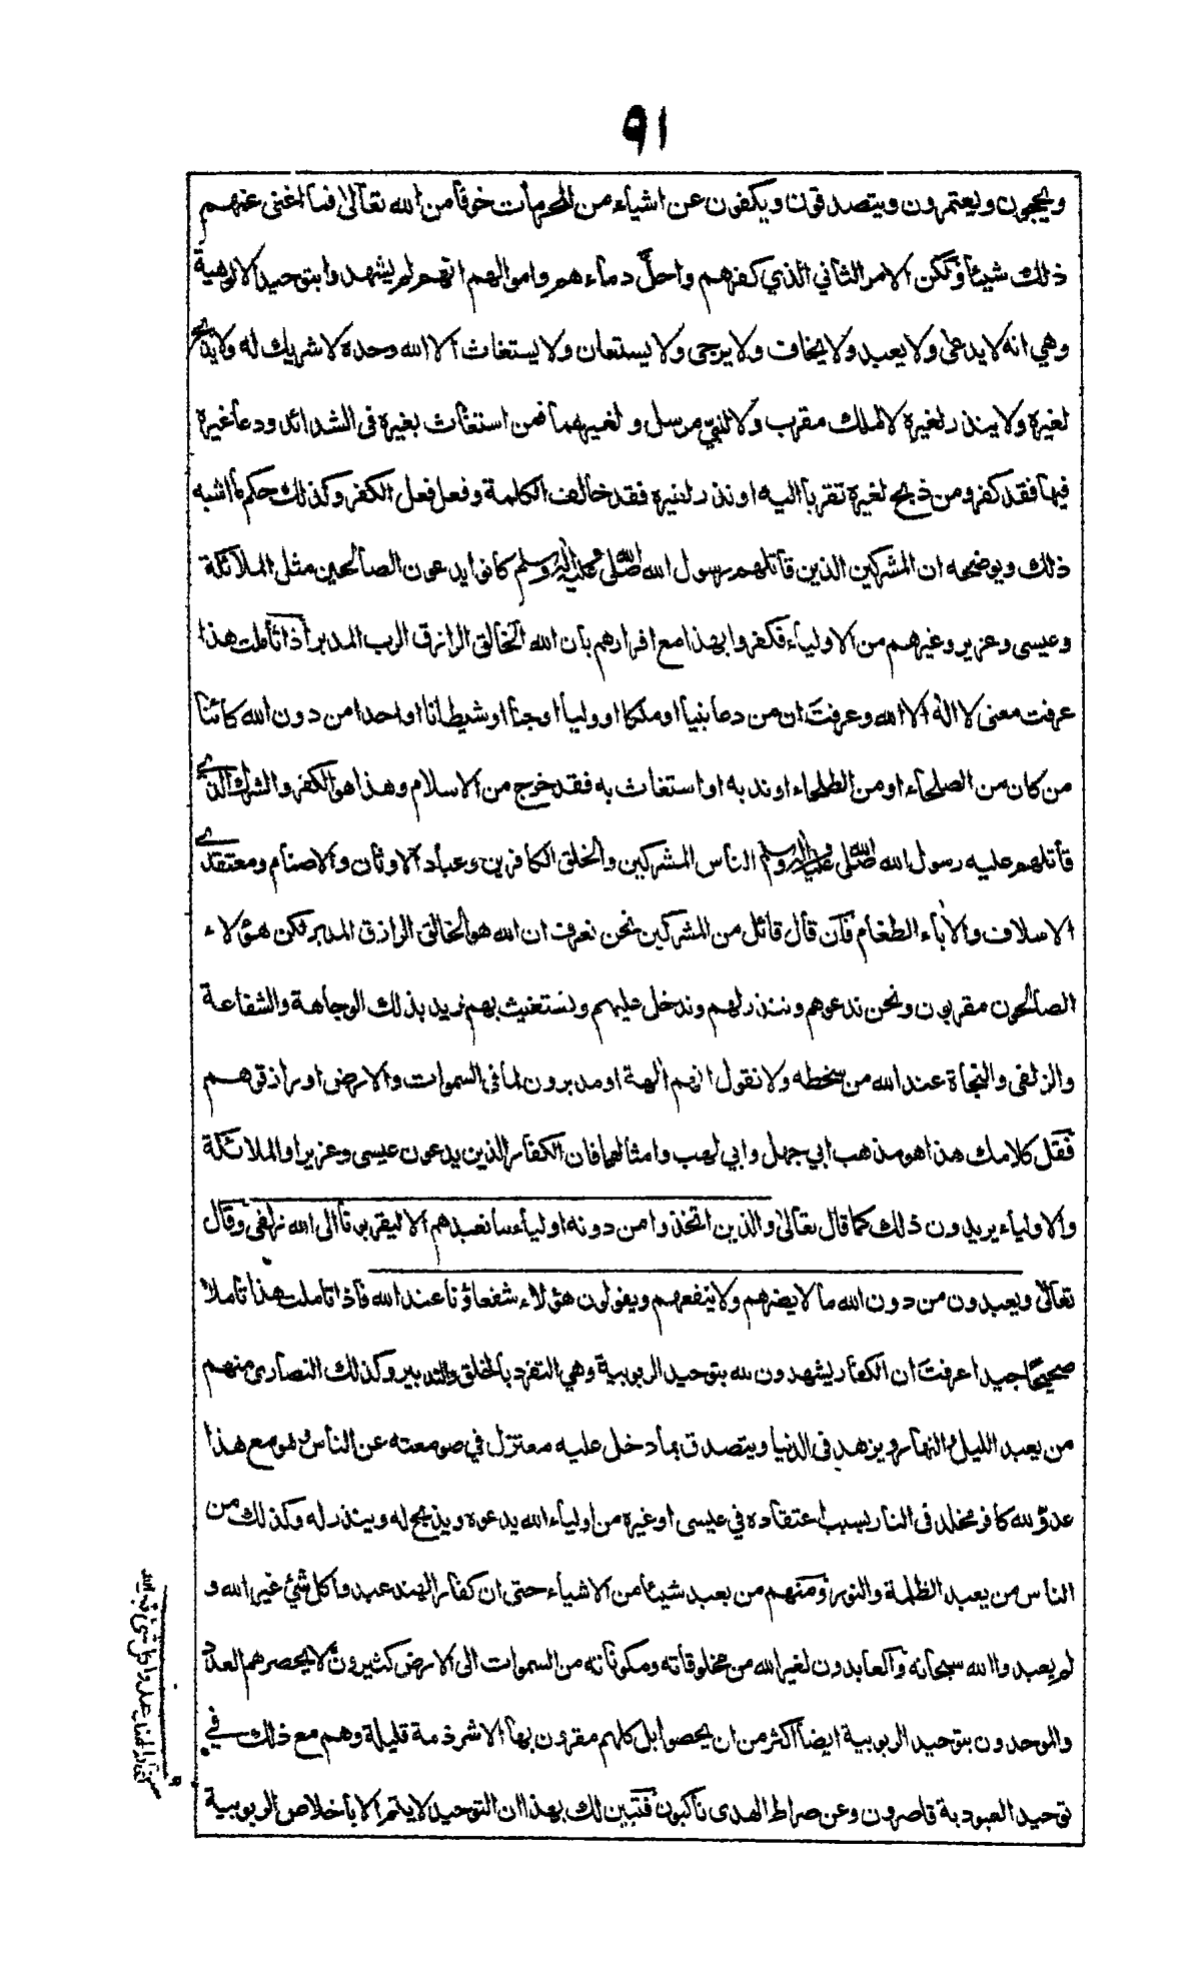 ٩١
ويحجون ويعتمرون ويتصدقون ويكفون عن اشياء من المحرمات خوفا من الله تعالى فما اغنى عنهم
ذلك شيئا ولكن الامر الثاني الذي كفرهم واحل دماءهم واموالهم انهم لم يشهدوا بتوحيد الالوهية
وهي انه لا يدعى ولا يعبد ولا يخاف ولا يرجى ولا يستعان ولا يستغاث الا الله وحده لا شريك له ولا يذبح
لغيره ولا ينذر لغيره لا لملك مقرب ولا لنبي مرسل ولغيرهما فمن استغاث بغيره فى الشدائد ودعا غيره
فيها فقد كفر ومن ذبح لغيره تقربا اليه او نذر لغيره فقد خالف الكلمة وفعل فعل الكفر وكذلك حكم ما اشبه
ذلك ويوضحه ان المشركين الذين قاتلهم رسول الله صلى الله عليه واله وسلم كانوا يدعون الصالحين مثل الملائكة
وعيسى وعزير وغيرهم من الاولياء فكفروا بهذا مع اقرارهم بان الله الخالق الرازق الرب المدبر اذا تأملت هذا
عرفت معنى لا اله الا الله وعرفت ان من دعا نبيا او ملكا او وليا او جنا او شيطانا او احدا من دون الله كائنا
من كان من الصلحاء او من الطلحاء او ندبه او استغاث به فقد خرج من الاسلام وهذا هو الكفر والشرك الذي
قاتلهم عليه رسول الله صلى الله عليه واله وسلم الناس المشركين والخلق الكافرين وعباد الاوثان والاصنام ومعتقدي
الاسلاف والأباء الطغام فان قال قائل من المشركين نحن نعرف ان الله هو الخالق الرازق المدبر لكن هؤلاء
الصالحون مقربون ونحن ندعوهم وننذر لهم وندخل عليهم ونستغيث بهم نريد بذلك الوجاهة والشفاعة
والزلفى والنجاة عند الله من سخطه ولا نقول انهم الهة او مدبرون لما فى السموات والارض او رازقوهم
فقل كلامك هذا هو مذهب ابي جهل وابي لهب وامثالهما فان الكفار الذين يدعون عيسى وعزيرا والملائكة
والاولياء يريدون ذلك كما قال تعالى والذين اتخذوا من دونه اولياء ما نعبدهم الا ليقربونا الى الله زلفى وقال
تعالى ويعبدون من دون الله ما لا يضرهم ولا ينفعهم ويقولون هؤلاء شفعاؤنا عند الله فاذا تاملت هذا تأملا
صحيحا جيدا عرفت ان الكفار يشهدون لله بتوحيد الربوبية وهي التفرد بالخلق والتدبير وكذلك النصارى منهم
من يعبد الليل والنهار ويزهد فى الدنيا ويتصدق بما دخل عليه معتزل في صومعته عن الناس وهو مع هذا
عدو لله كافر مخلد فى النار بسبب اعتقاده في عيسى او غيره من اولياء الله يدعوه ويذبح له وينذر له وكذلك من
الناس من يعبد الظلمة والنور ومنهم من يعبد شيئا من الاشياء حتى ان كفار الهند عبدوا كل شئ غير الله و
لم يعبدوا الله سبحانه والعابدون لغير الله من مخلوقاته ومكوناته من السموات الى الارض كثيرون لا يحصرهم العد
والموحدون بتوحيد الربوبية ايضا اكثر من ان يحصوا بل كلهم مقرون بها الا شرذمة قليلة وهم مع ذلك في
توحيد العبودية قاصرون وعن صراط الهدى ناكبون فتبين لك بهذا ان التوحيد لا يتم الا باخلاص الربوبية